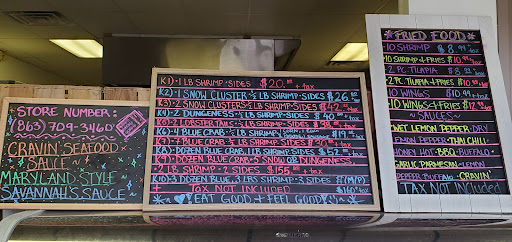 STORE NUMBER:
(863) 709-3460
CRAVIN' SEAFOOD
SAUCE ~
MARYLAND STYLE
SAVANNAH'S SAUCE
K1) · 1 LB SHRIMP · SIDES $20.00 + tax
K2) · 1 SNOW CLUSTER · 1/2 LB SHRIMP · SIDES $26.00
K3) · 2 SNOW CLUSTERS · 1/2 LB SHRIMP · SIDES $42
K4) · 2 DUNGENESS · 1/2 LB SHRIMP · SIDES $40.00 + tax
K5) · 2 LOBSTER TAILS · LB SHRIMP · SIDES
K6) · 4 BLUE CRAB · 1/2 LB SHRIMP
K7) · 7 BLUE CRAB · 1/2 LB SHRIMP · SIDES $30.00 + tax
K8) · DOZEN BLUE CRAB · 1 LB SHRIMP · SIDES $57
K9) · DOZEN BLUE CRAB · 5 SNOW OR DUNGENESS
· 2 LB SHRIMP · 2 SIDES $155.00 + tax
K10) · 3 DOZEN BLUE, 3 LBS SHRIMP · 3 SIDES $160 + tax
TAX NOT INCLUDED
EAT GOOD + FEEL GOOD!
FRIED FOOD
10 SHRIMP $8.99 + tax
10 SHRIMP + FRIES $10.99
2 PC. TILAPIA $8.99
2 PC TILAPIA + FRIES $10.99
10 WINGS $10.99 + tax
10 WINGS + FRIES $12.99
~ SAUCES ~
WET LEMON PEPPER · DRY
LEMON PEPPER · THAI CHILI
HONEY HOT · BBQ · BUFFALO
GARLIC PARMESAN · LEMON
PEPPER BUFFALO · CRAVIN'
TAX NOT INCLUDED